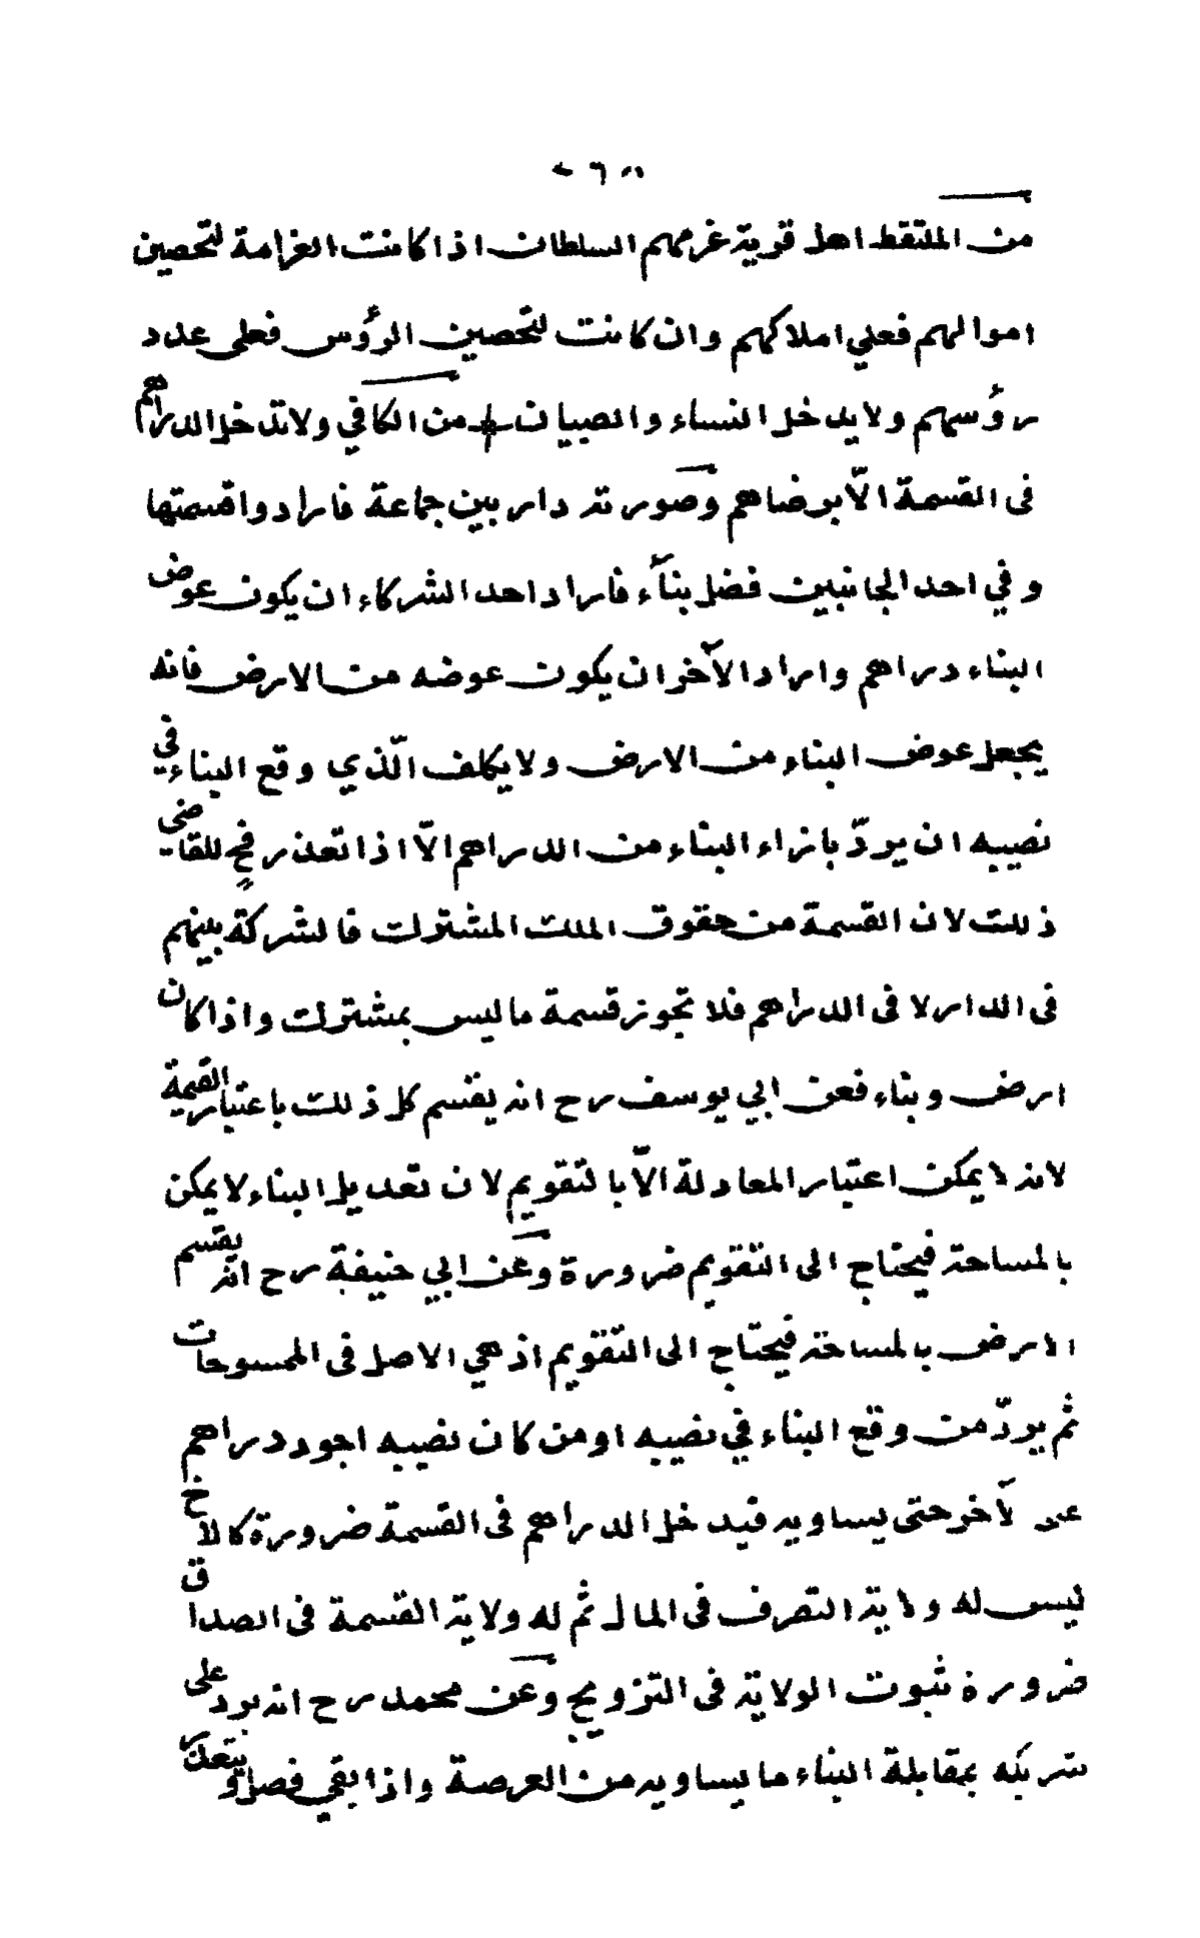 من الملتقط اهل قرية غرمهم السلطان اذا كانت الغرامة لتحصين
اموالهم فعلي املاكهم وان كانت لتحصين الرؤس فعلى عدد
رؤسهم ولا يدخل النساء والصبيان من الكافي ولا تدخل الدراهم
فى القسمة الّا برضاهم وصورته دار بين جماعة فارادوا قسمتها
وفي احد الجانبين فضل بنآء فاراد احد الشركاء ان يكون عوض
البناء دراهم واراد الآخر ان يكون عوضه من الارض فانه
يجعل عوض البناء من الارض ولا يكلف الّذي وقع البناء في
نصيبه ان يردّ بازاء البناء من الدراهم الّا اذا تعذر فح للقاضي
ذلك لان القسمة من حقوق الملك المشترك فالشركة بينهم
فى الدار لا فى الدراهم فلا تجوز قسمة ما ليس بمشترك واذا كان
ارض وبناء فعن ابي يوسف رح انه يقسم كل ذلك باعتبار القيمة
لانه لا يمكن اعتبار المعادلة الّا بالتقويم لان تعديل البناء لا يمكن
بالمساحة فيحتاج الى التقويم ضرورة وعن ابي حنيفة رح انه يقسم
الارض بالمساحة فيحتاج الى التقويم اذ هي الاصل فى الممسوحات
ثم يردّ من وقع البناء في نصيبه او من كان نصيبه اجود دراهم
على لآخر حتى يساويه فيدخل الدراهم فى القسمة ضرورة كالاخ
ليس له ولاية التصرف فى المال ثم له ولاية القسمة فى الصداق
ضرورة ثبوت الولاية فى التزويج وعن محمد رح انه يرد على
شريكه بمقابلة البناء ما يساويه من العرصة واذا بقي فصل و